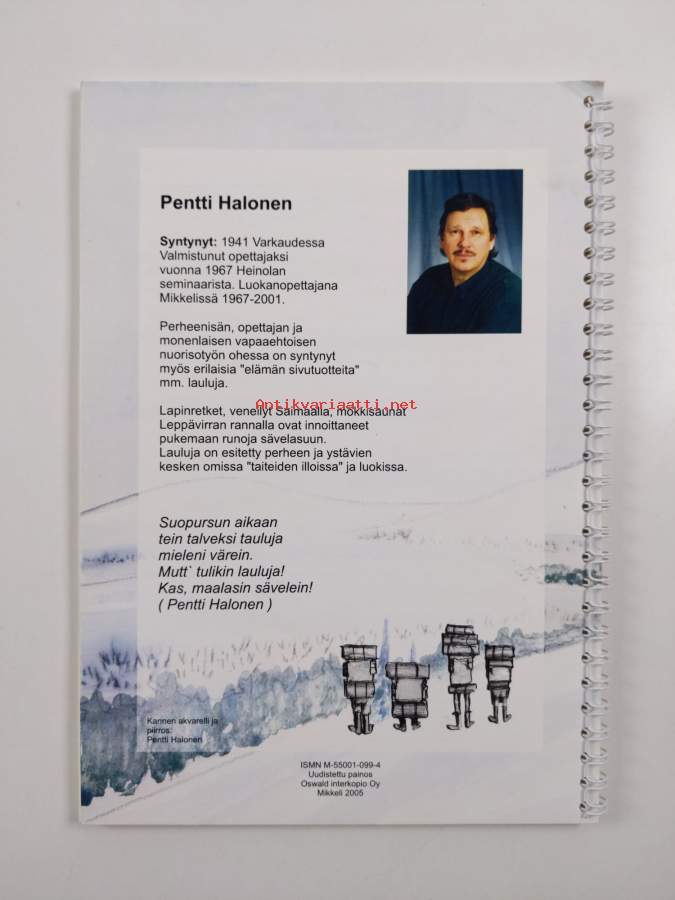 Pentti Halonen
Syntynyt: 1941 Varkaudessa
Valmistunut opettajaksi
vuonna 1967 Heinolan
seminaarista. Luokanopettajana
Mikkelissä 1967-2001.
Perheenisän, opettajan ja
monenlaisen vapaaehtoisen
nuorisotyön ohessa on syntynyt
myös erilaisia "elämän sivutuotteita"
mm. lauluja.
Antikvariaatti.net
Lapinretket, veneilyt Saimaalla, mökkisaunat
Leppävirran rannalla ovat innoittaneet
pukemaan runoja sävelasuun.
Lauluja on esitetty perheen ja ystävien
kesken omissa "taiteiden illoissa" ja luokissa.
Suopursun aikaan
tein talveksi tauluja
mieleni värein.
Mutt` tulikin lauluja!
Kas, maalasin sävelein!
( Pentti Halonen )
Kannen akvarelli ja
piirros:
Pentti Halonen
ISMN M-55001-099-4
Uudistettu painos
Oswald interkopio Oy
Mikkeli 2005